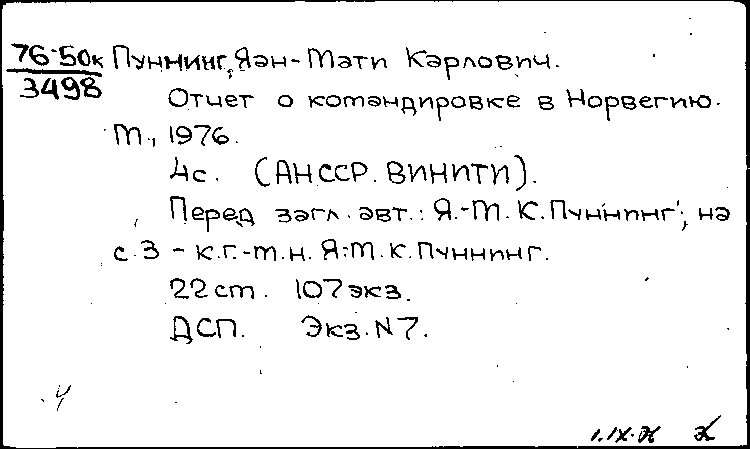 76-50к Пуннинг, Яан-Мати Карлович.
3498
Отчет о командировке в Норвегию.
М., 1976.
4с. (АН СССР. ВИНИТИ).
Перед загл. авт.: Я.-М. К. Пуннинг; на
с. 3 - к.г.-м.н. Я.-М. К. Пуннинг.
22 cm. 107 экз.
ДСП. Экз. N 7.
Ч
1.IX.76